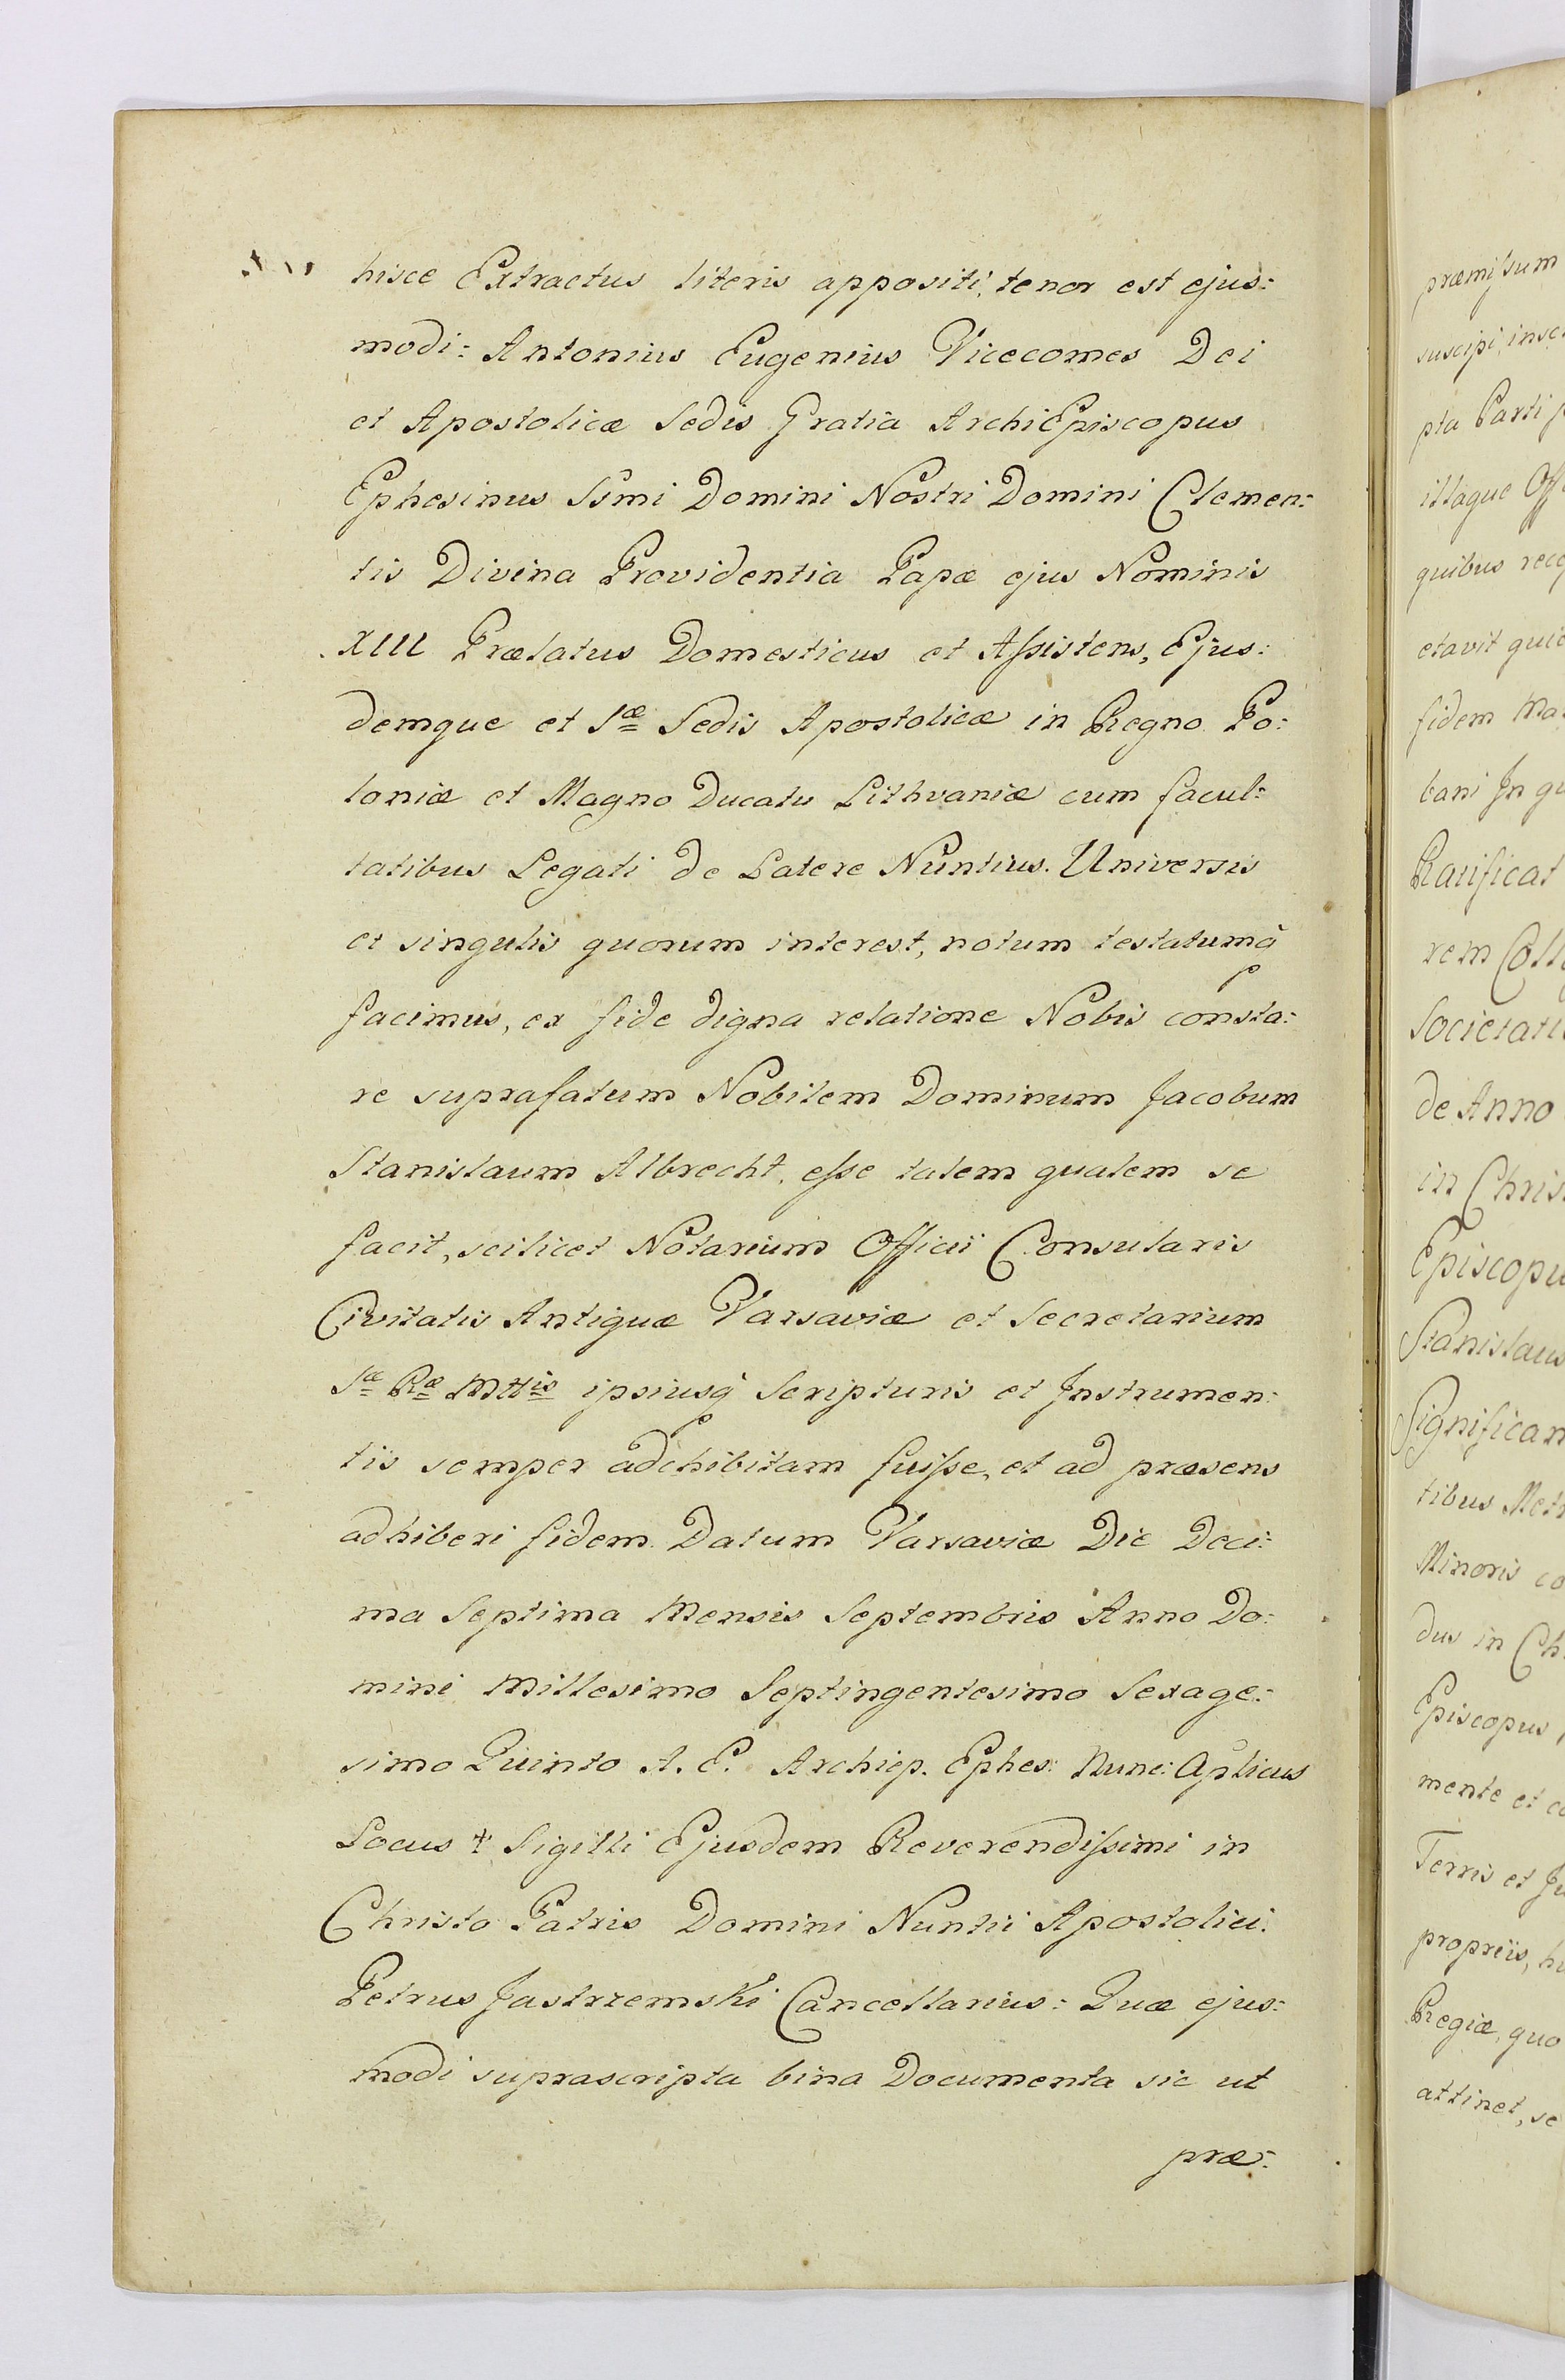 hisce Extractus literis appositi, tenor est ejus:
modi: Antonius Eugenius Vicecomes Dei
et Apostolicæ Sedis Gratia ArchiEpiscopus
Ephesinus Ssmi Domini Nostri Domini Clemen:
tis Divina Providentia Papæ ejus Nominis
XIII Prælatus Domesticus et Aſsistens, Ejus:
demque et Sæ Sedis Apostolicæ in Regno Po:
loniæ et Magno Ducatu Lithvaniæ cum facul:
tatibus Legati de Latere Nuntius. Universis
et singulis quorum interest, notum testatumq̃
facimus, ex fide digna relatione Nobis consta:
re suprafatum Nobilem Dominum Jacobum
Stanislaum Albrecht, eſse talem qualem se
facit, scilicet Notarium Officii Consularis
Civitatis Antiquæ Varsaviæ et Secretarium
Sæ Ræ Mttis ipsiusq̃ Scripturis et Instrumen:
tis semper adchibitam fuiſse, et ad præsens
adhiberi fidem. Datum Varsaviæ Die Deci:
ma Septima Mensis Septembris Anno Do:
mini Millesimo Septingentesimo Sexage:
simo Quinto A. E. Archiep. Ephes: Nunc: Aplicus
Locus ✝ Sigilli Ejusdem Reverendiſsimi in
Christo Patris Domini Nuntii Apostolici.
Petrus Jastrzemski Cancellarius: Quæ ejus:
modi suprascripta bina Documenta sic ut
præ:
præmiſsum
suscipi, inse
pta Parti
illaque Off
quibus rece
etavit quie
fidem Ma
bani In qu
Ratificat
rem Coll
Societati
de Anno
in Chris
Episcopu
Stanislaus
Significan
tibus Metr
Minoris co
dus in Ch
Episcopus,
mente et co
Terris et Ju
propriis, h
Regiæ, quo
attinet, se